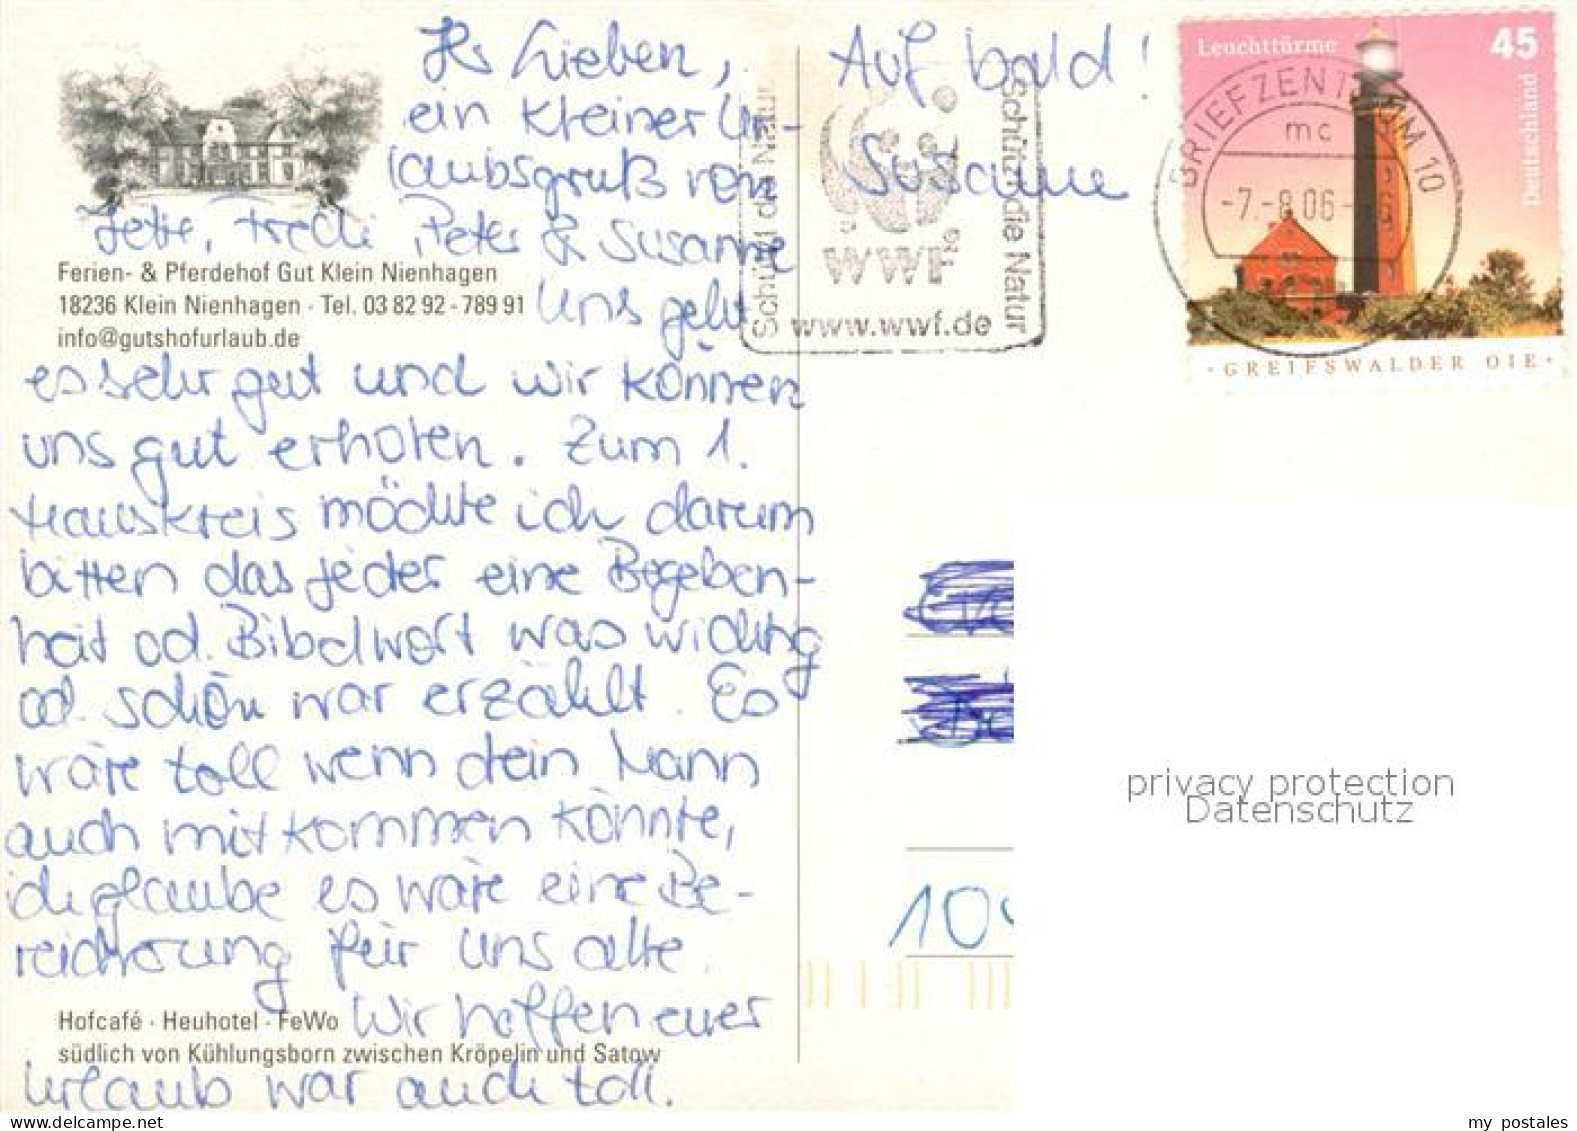 Ihr Lieben,
ein kleiner Ur-
laubsgruß von
Jette, Fredi, Peter & Susanne
Ferien- & Pferdehof Gut Klein Nienhagen
18236 Klein Nienhagen · Tel. 03 82 92 - 789 91
info@gutshofurlaub.de
Uns geht
es sehr gut und wir können
uns gut erholen. Zum 1.
Hauskreis möchte ich darum
bitten das jeder eine Begeben-
heit od. Bibelwort was wichtig
od. schön war erzählt. Es
wäre toll wenn dein Mann
auch mitkommen könnte,
ich glaube es wäre eine Be-
reicherung für uns alle.
Wir hoffen euer
Hofcafé · Heuhotel · FeWo
südlich von Kühlungsborn zwischen Kröpelin und Satow
Urlaub war auch toll.
Auf bald!
Susanne
Schützt die Natur
WWF
www.wwf.de
Schützt die Natur
BRIEFZENTRUM 10
mc
-7.-8.06-
Leuchttürme
45
Deutschland
· GREIFSWALDER OIE ·
10
privacy protection
Datenschutz
my postales